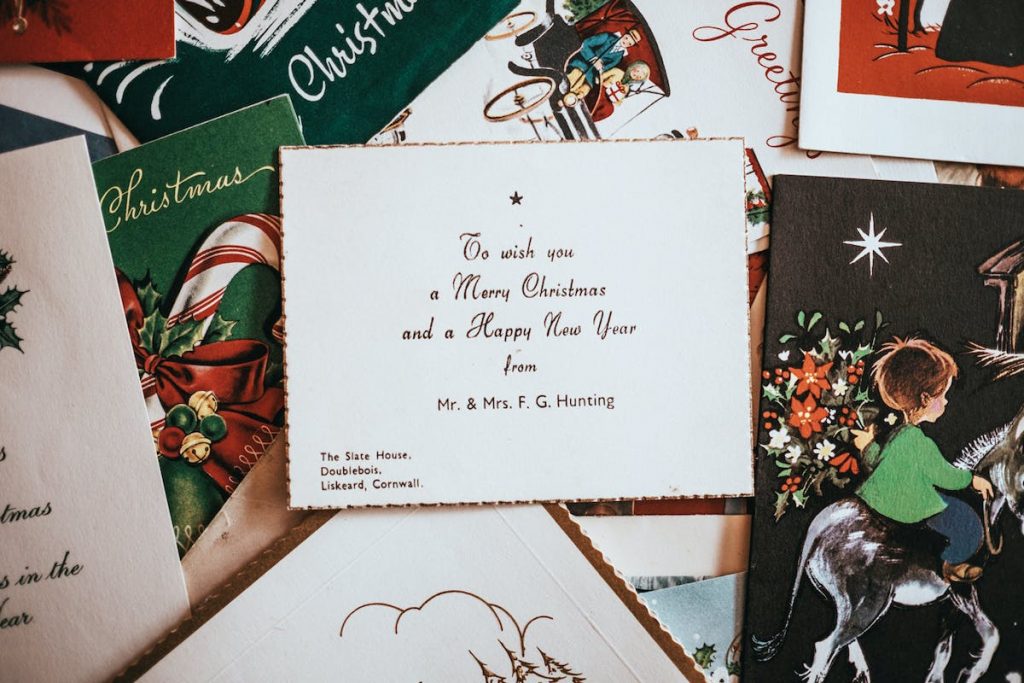 Christmas
Greetings
Christmas
To wish you
a Merry Christmas
and a Happy New Year
from
Mr. & Mrs. F. G. Hunting
The Slate House,
Doublebois,
Liskeard, Cornwall.
in the